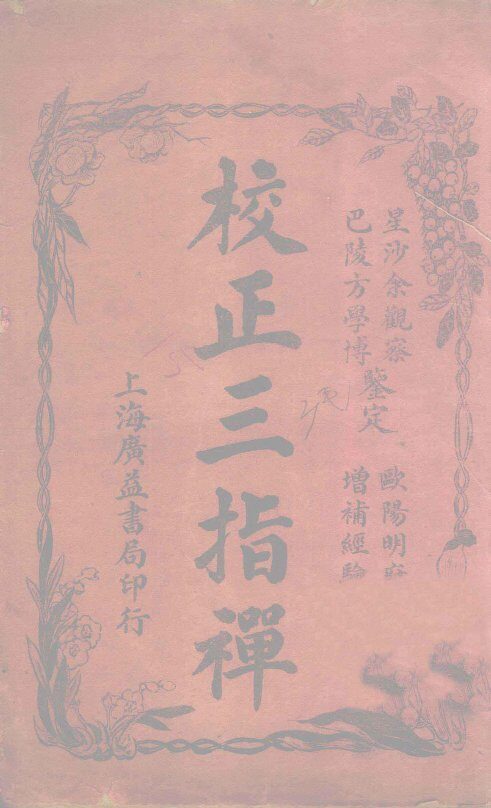 星沙余觀察
巴陵方學博
鑒定
歐陽明府
增補經驗
校正三指禪
上海廣益書局印行